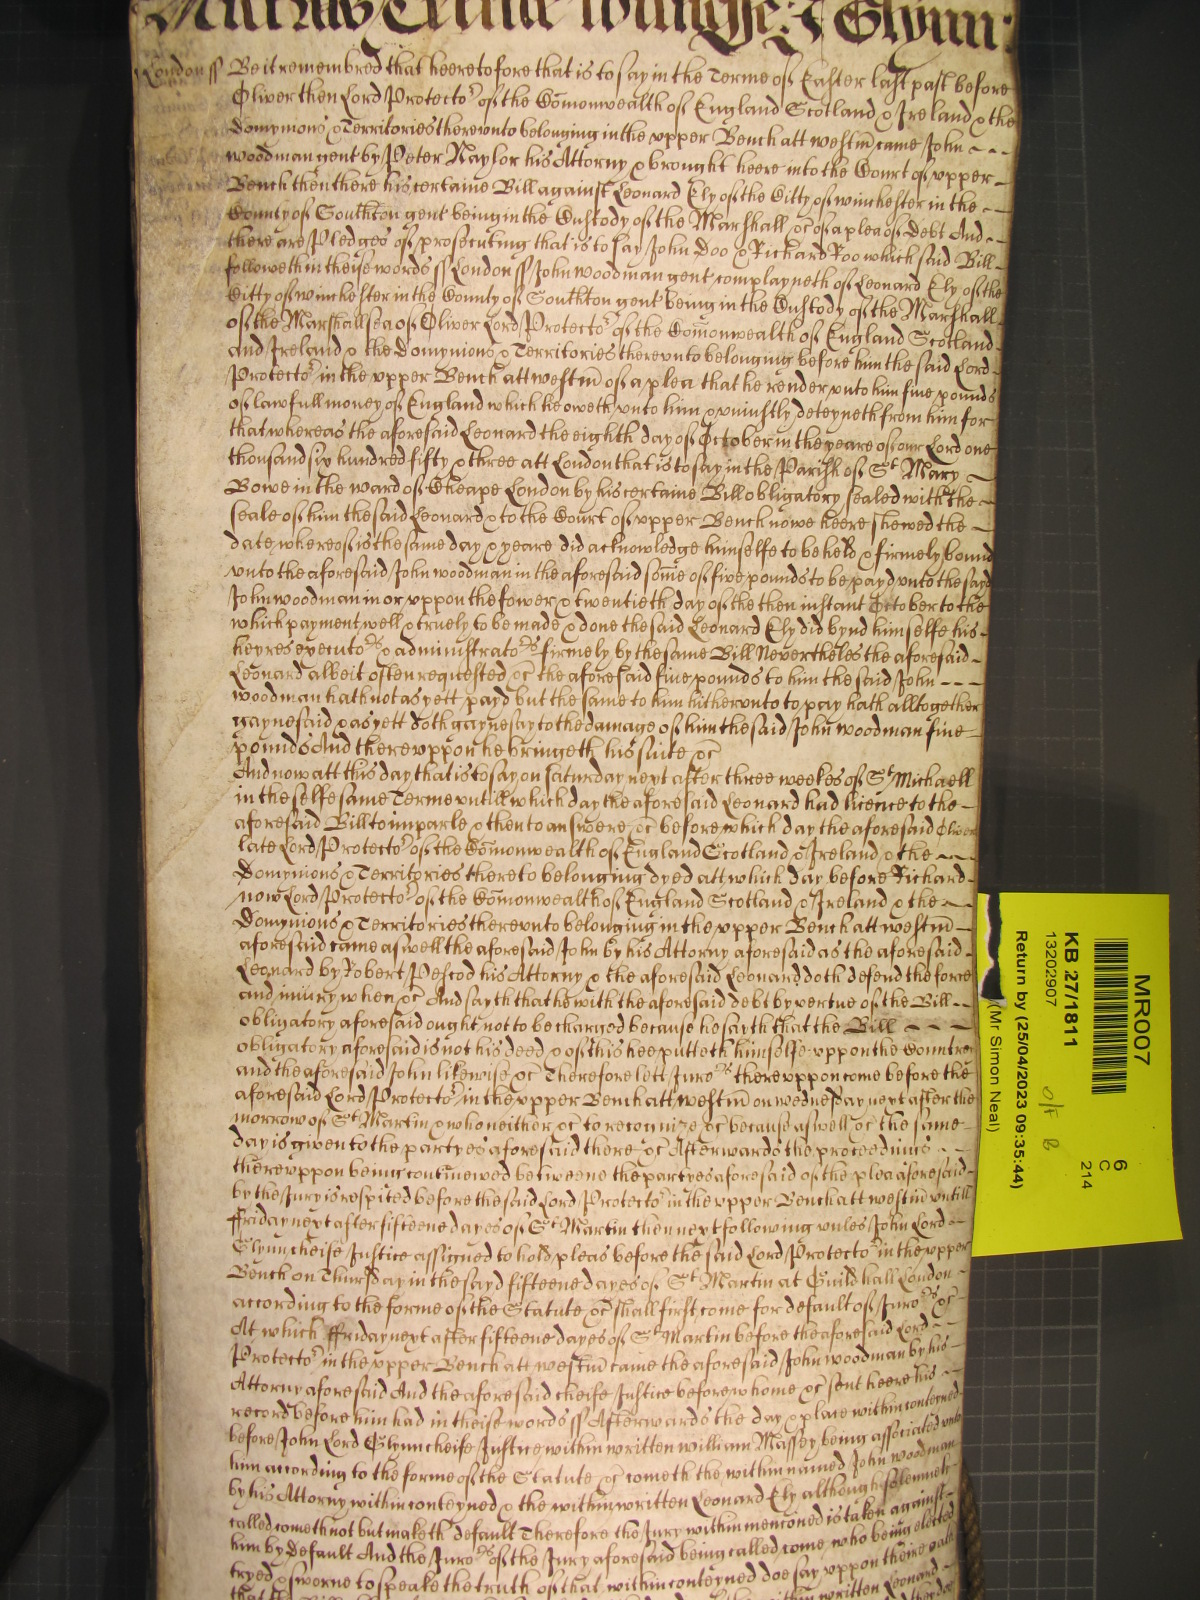 Glynn:
London ss Be it remembred that heeretofore that is to say in the Terme of Easter last past before
Oliver then Lord Protector of the Comonwealth of England Scotland & Ireland & the
Domynions & Territories therevnto belonging in the vpper Bench att westm came John
woodman gent by Peter Naylor his Attorny & brought heere into the Court of vpper
Bench then there his certaine Bill against Leonard Ely of the Citty of winchester in the
County of Southton gent being in the Custody of the Marshall &c of a plea of Debt And
there are Pledges of prosecuting that is to say John Doo & Richard Roo which said Bill
followeth in theise words ss London ss John woodman gent complayneth of Leonard Ely of the
Citty of winchester in the County of Southton gent being in the Custody of the Marshall
of the Marshallsea of Oliver Lord Protector of the Comonwealth of England Scotland
and Ireland & the Domynions & Territories therevnto belonging before him the said Lord
Protector in the vpper Bench att westm of a plea that he render vnto him five pounds
of lawfull money of England which he oweth vnto him & vniustly deteyneth from him for
that whereas the aforesaid Leonard the eighth day of October in the yeare of our Lord one
thousand six hundred fifty & three att London that is to say in the Parish of St Mary
Bowe in the ward of Cheape London by his certaine Bill obligatory sealed with the
seale of him the said Leonard & to the Court of vpper Bench nowe heere shewed the
date whereof is the same day & yeare did acknowledge himselfe to be held & firmely bound
vnto the aforesaid John woodman in the aforesaid some of five pounds to be payd vnto the sayd
John woodman in or vppon the fower & twentieth day of the then instant October to the
which payment well & truely to be made & done the said Leonard Ely did bynd himselfe his
heyres executors & administrators firmely by the same Bill Nevertheles the aforesaid
Leonard albeit often requested &c the aforesaid five pounds to him the said John
woodman hath not as yett payd but the same to him hithervnto to pay hath alltogether
gaynesaid & as yett doth gaynesay to the damage of him the said John woodman five
pounds And therevppon he bringeth his suite &c
And now att this day that is to say on saturday next after three weekes of St Michaell
in the selfe same Terme vntill which day the aforesaid Leonard had licence to the
aforesaid Bill to imparle & then to answere &c before which day the aforesaid Oliver
late Lord Protector of the Comonwealth of England Scotland & Ireland & the
Domynions & Territories thereto belonging dyed att which day before Richard
now Lord Protector of the Comonwealth of England Scotland & Ireland & the
Domynions & Territories therevnto belonging in the vpper Bench att westm
aforesaid came aswell the aforesaid John by his Attorny aforesaid as the aforesaid
Leonard by Robert Pescod his Attorny & the aforesaid Leonard doth defend the force
and iniury when &c And sayth that he with the aforesaid debt by vertue of the Bill
obligatory aforesaid ought not to be charged because he sayth that the Bill
obligatory aforesaid is not his deed & of this hee putteth himselfe vppon the Countrey
and the aforesaid John likewise &c Therefore lett Jurors therevppon come before the
aforesaid Lord Protector in the vpper Bench att westm on wednesday next after the
morrow of St Martin & who neither &c to recognize &c because aswell &c the same
day is given to the partyes aforesaid there &c Afterwards the proceedings
therevppon being continewed betweene the partyes aforesaid of the plea aforesaid
by the Jury is respited before the said Lord Protector in the vpper Bench att westm vntill
ffriday next after fifteene dayes of St Martin then next following vnles John Lord
Glynn cheife Justice assigned to hold pleas before the said Lord Protector in the vpper
Bench on Thursday in the sayd fifteene dayes of St Martin at Guildhall London
according to the forme of the Statute &c shall first come for default of Jurors &c
At which ffriday next after fifteene dayes of St Martin before the aforesaid Lord
Protector in the vpper Bench att westm came the aforesaid John woodman by his
Attorny aforesaid And the aforesaid cheife Justice before whome &c sent heere his
record before him had in theise words ss Afterwards the day & place within conteyned
before John Lord Glynn cheife Justice within written william Massey being associated vnto
him according to the forme of the Statute &c cometh the within named John woodman
by his Attorny within conteyned & the within written Leonard Ely although solemnely
called cometh not but maketh default Therefore the Jury within mencioned is taken against
him by default And the Jurors of the Jury aforesaid being called come who being elected
tryed & sworne to speake the truth of that within conteyned doe say vppon theire oath
MR007
KB 27/1811
13202907
Return by (25/04/2023 09:35:44)
(Mr Simon Neal)
6
C
214